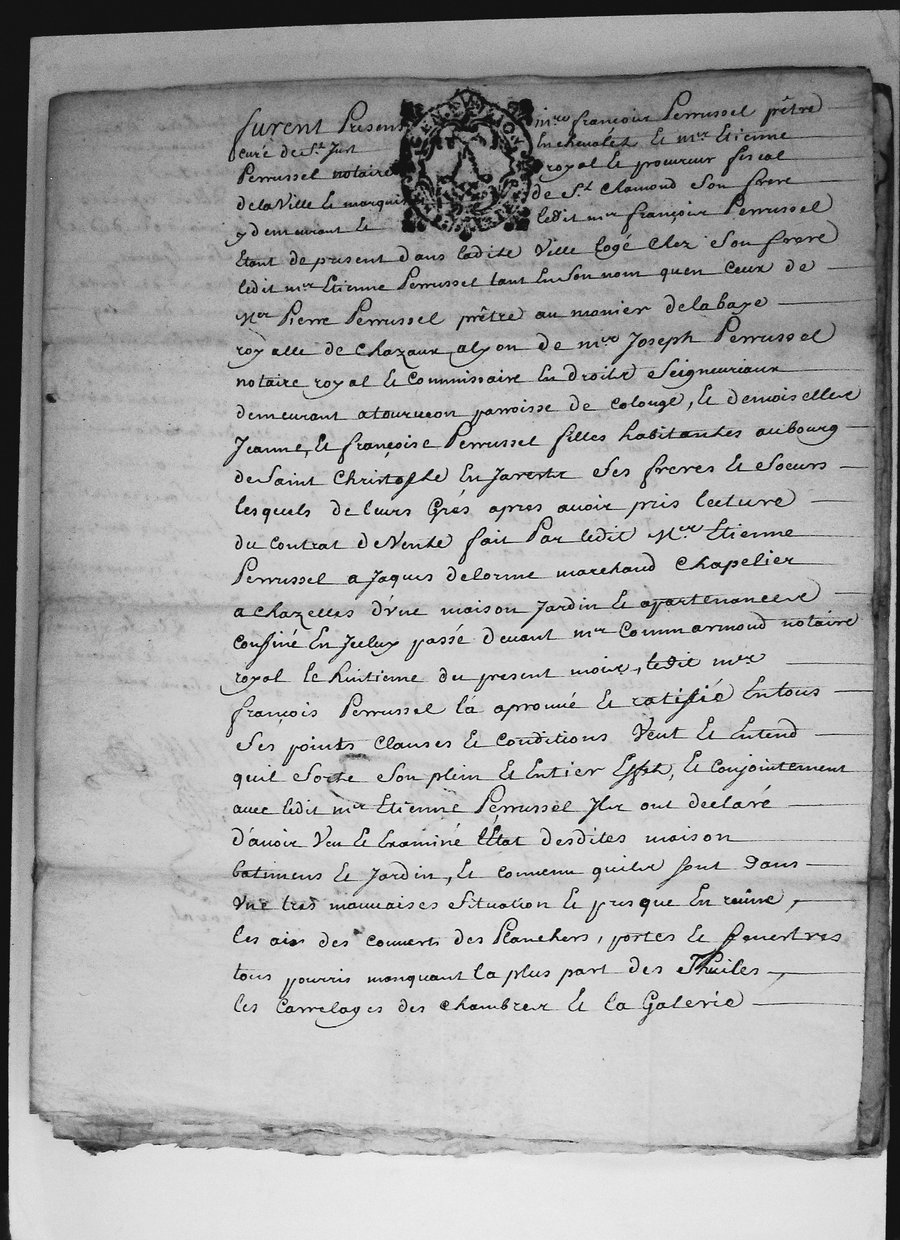 furent Presens mre françois Perrussel prêtre
curé de St Just En chevalet Et mr Etienne
Perrussel notaire royal Et procureur fiscal
de la Ville Et marquis de St Chamond Son frere
y demeurant Et ledit mr françois Perrussel
Etant de present dans ladite Ville Logé chez Son frere
ledit mr Etienne Perrussel tant En Son nom quen Ceux de
Mer Pierre Perrussel prêtre au monier de labaye
royalle de Chazaux alyon de mr Joseph Perrussel
notaire royal Et Commissaire En droits Seigneuriaux
demeurant a tourueon parroisse de Colonge, Et demoiselles
Jeanne, Et françoise Perrussel filles habitantes au bourg
de Saint Christophle En Jarests Ses freres Et Soeurs
lesquels de leurs Grés apres auoir pris lecture
du Contrat de Vente fait Par ledit Mer Etienne
Perrussel a Jaques delorme marchand Chapelier
a chazelles d'vne maison Jardin Et apartenances
confiné En Jceluy passé deuant mr Commarmond notaire
royal le huitieme du present mois, ledit mr
françois Perrussel la aprouué Et ratifié En tous
Ses points Clauses Et Conditions Veut Et Entend
quil Sorte Son plein Et Entier Effet, Et conjointement
auec ledit mr Etienne Perrussel Jls ont declaré
d'auoir Veu Et Examiné l'Etat desdites maison
batimens Et Jardin, Et conuenu quils sont dans
Vne tres mauuaises Situation Et presque En ruine,
les ais des couuerts des Planchers, portes Et fenertres
tous pourris manquant la plus part des Thuiles,
les Carrelages des chambres Et la Galerie